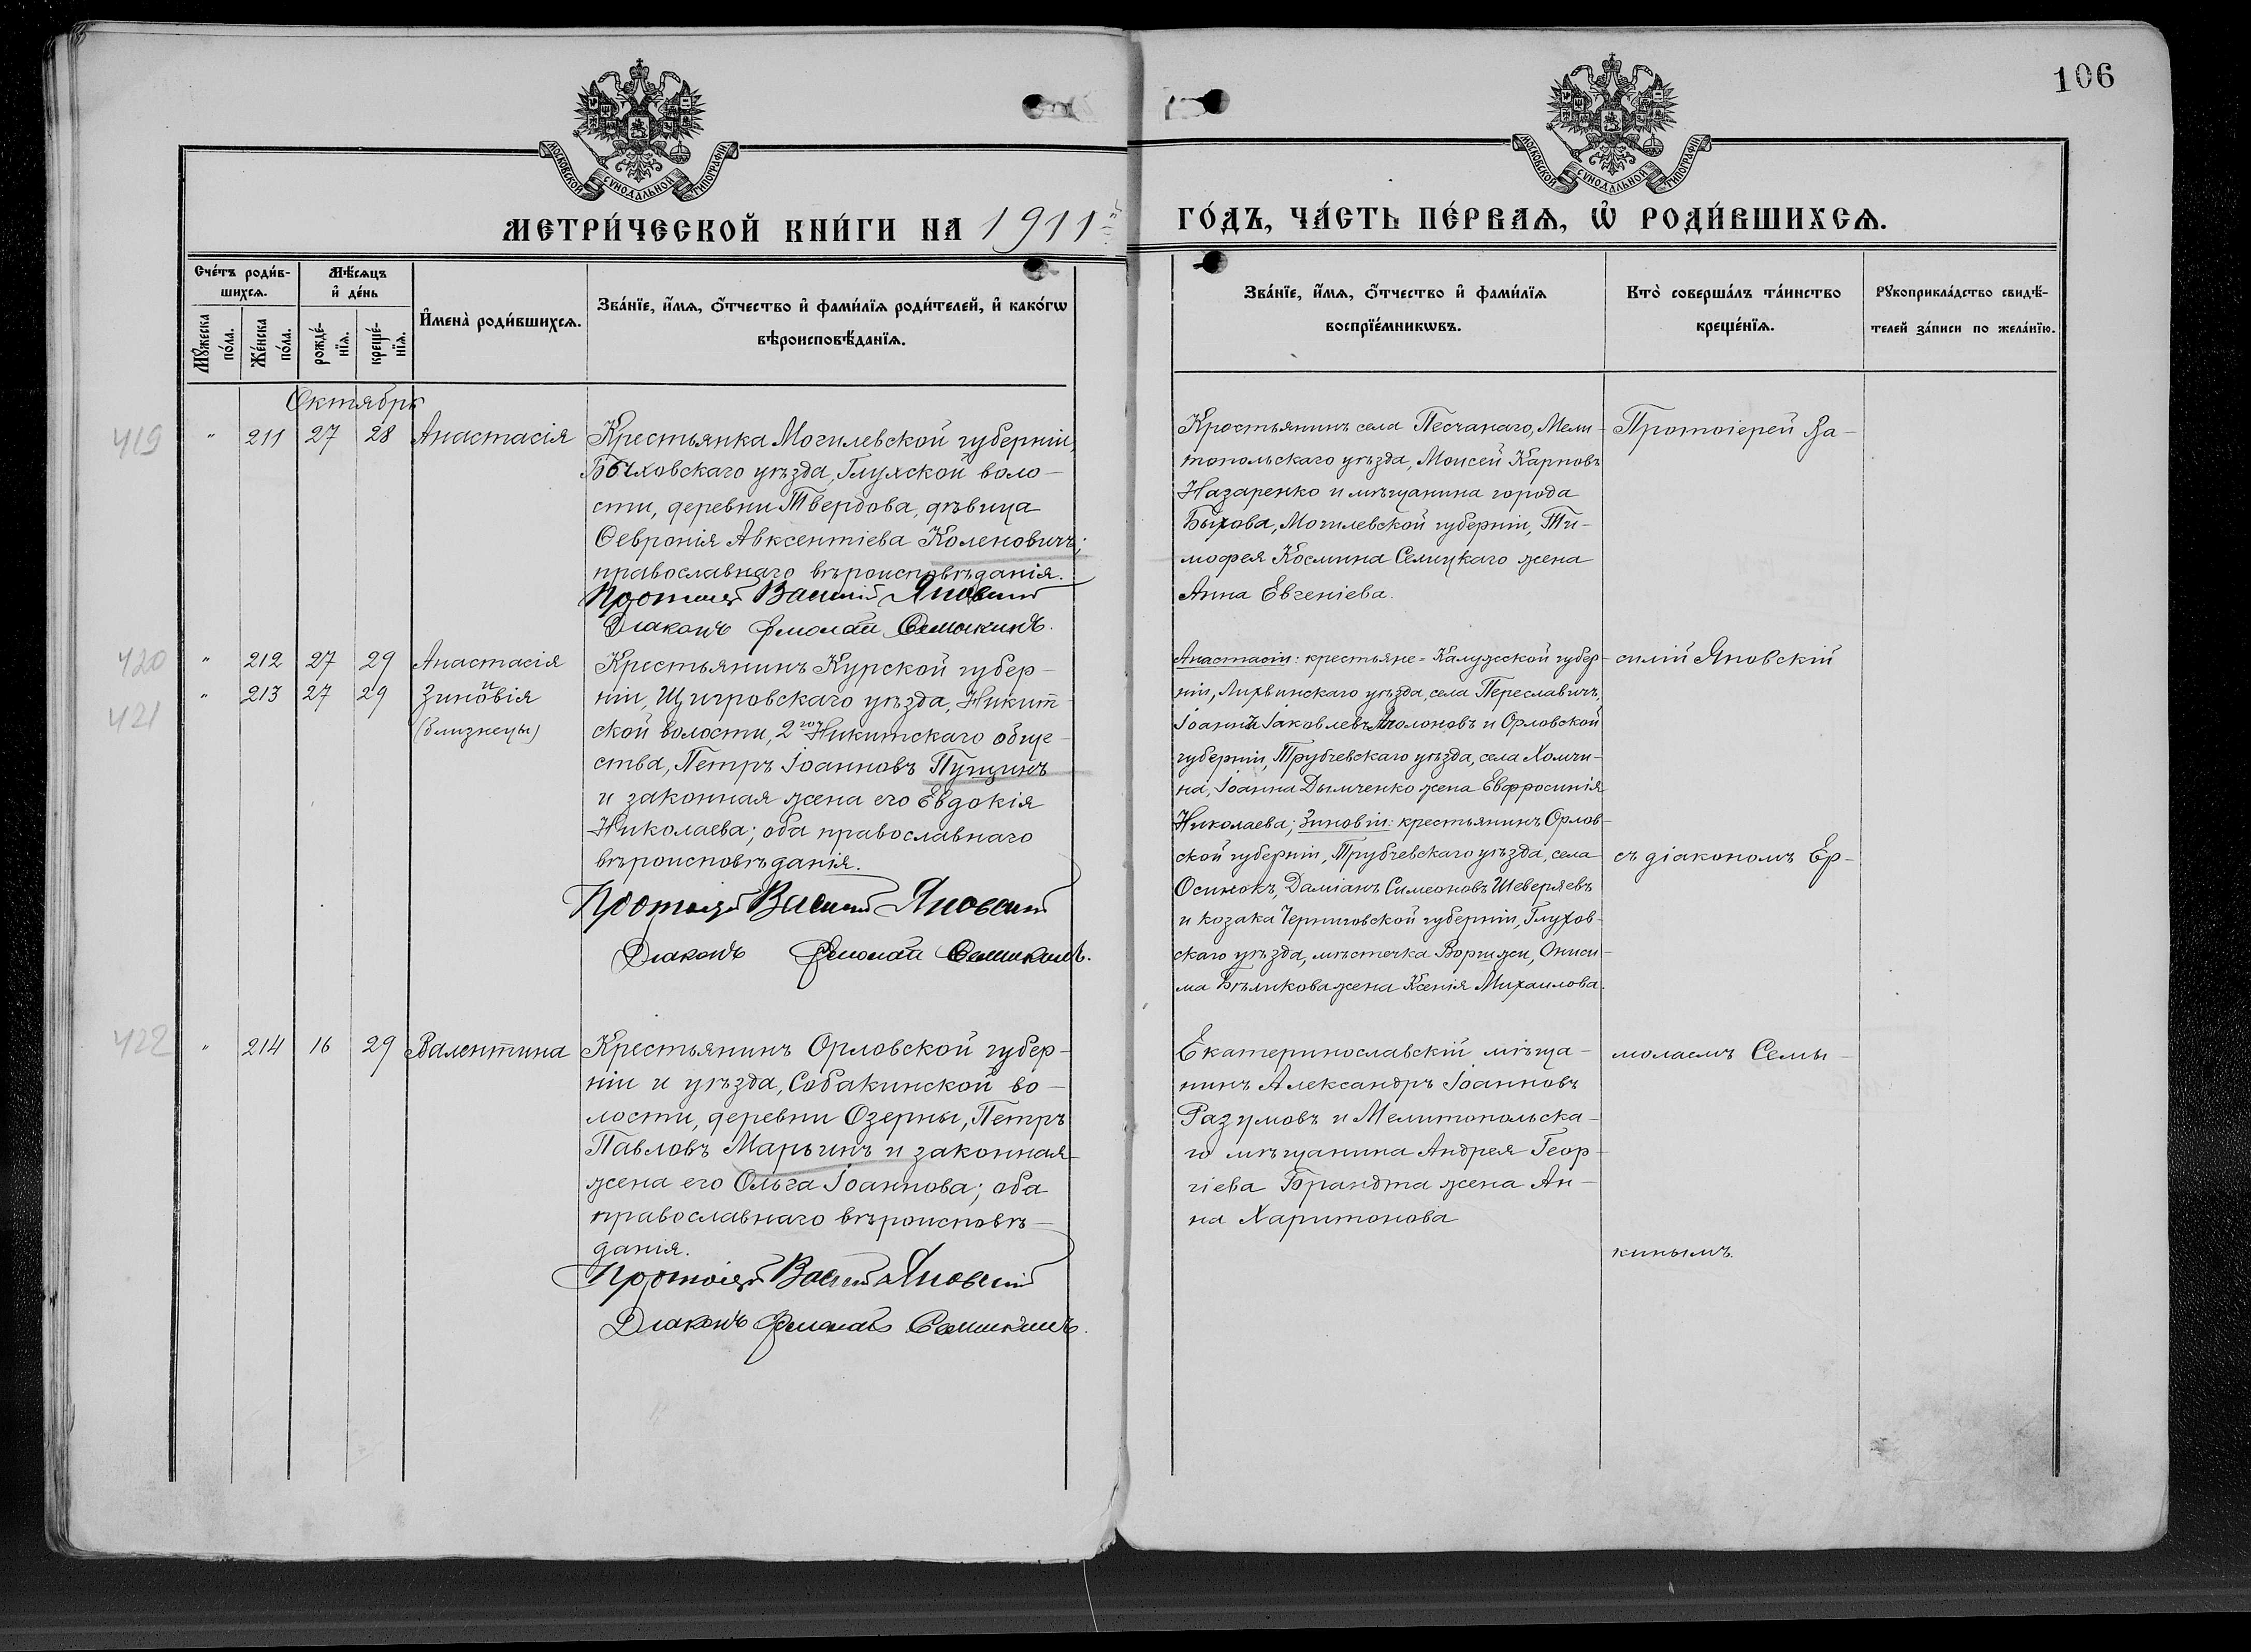 106
МОСКОВСКОЙ СѴНОДАЛЬНОЙ ТИПОГРАФІИ
МОСКОВСКОЙ СѴНОДАЛЬНОЙ ТИПОГРАФІИ
МЕТРИ́ЧЕСКОЙ КНИ́ГИ НА 1911й
ГО́ДЪ, ЧА́СТЬ ПЕ́РВАѦ, Ѡ҆ РОДИ́ВШИХСѦ.
Сче́тъ роди́в-
шихсѧ.
Мꙋ́жеска
по́ла.
Же́нска
по́ла.
Мѣ́сѧцъ
и҆ де́нь
рожде́-
нїѧ.
креще́-
нїѧ.
И҆мена̀ роди́вшихсѧ.
Зва́нїе, и҆́мѧ, ѻ҆́тчество и҆ фами́лїѧ роди́телей, и҆ како́гѡ
вѣроисповѣ́данїѧ.
Зва́нїе, и҆́мѧ, ѻ҆́тчество и҆ фами́лїѧ
воспрїе́мникѡвъ.
Кто̀ соверша́лъ та́инство
креще́нїѧ.
Рꙋкоприкла́дство свидѣ́-
телей за́писи по жела́нїю.
Октябрь
419 " 211 27 28 Анастасія
Крестьянка Могилевской губерніи,
Быховскаго уѣзда, Глухской воло-
сти, деревни Твердова, дѣвица
Ѳевронія Авксентіева Коленовичъ;
православнаго вѣроисповѣданія.
Протоіерей Василій Яновскій
Діаконъ Ермолай Семыкинъ.
Крестьянинъ села Песчанаго, Мели-
топольскаго уѣзда, Моисей Карповъ
Назаренко и мѣщанина города
Быхова, Могилевской губерніи, Ти-
мофея Космина Селицкаго жена
Анна Евгеніева.
Протоіерей Ва-
420 " 212 27 29 Анастасія
и
421 " 213 27 29 Зиновія
(близнецы)
Крестьянинъ Курской губер-
ніи, Щигровскаго уѣзда, Никит-
ской волости, 2го Никитскаго обще-
ства, Петръ Іоанновъ Пущинъ
и законная жена его Евдокія
Николаева; оба православнаго
вѣроисповѣданія.
Протоіерей Василій Яновскій
Діаконъ Ермолай Семыкинъ.
Анастасіи: крестьяне - Калужской губер-
ніи, Лихвинскаго уѣзда, села Переславичъ,
Іоаннъ Іаковлевъ и Орловской
губерніи, Трубчевскаго уѣзда, села Холчи-
на, Іоанна Дымченко жена Евфросинія
Николаева; Зиновіи: крестьянинъ Орлов-
ской губерніи, Трубчевскаго уѣзда, села
Осинокъ, Даміанъ Симеоновъ Шеверяевъ
и козака Черниговской губерніи, Глухов-
скаго уѣзда, мѣстечка Воргижи, Ониси-
ма Бѣликова жена Ксенія Михаилова.
силій Яновскій
съ діакономъ Ер-
422 " 214 16 29 Валентина
Крестьянинъ Орловской губер-
ніи и уѣзда, Собакинской во-
лости, деревни Озерны, Петръ
Павловъ Марьинъ и законная
жена его Ольга Іоаннова; оба
православнаго вѣроисповѣ-
данія.
Протоіерей Василій Яновскій
Діаконъ Ермолай Семыкинъ.
Екатеринославскій мѣща-
нинъ Александръ Іоанновъ
Разумовъ и Мелитопольска-
го мѣщанина Андрея Геор-
гіева Брандта жена Ан-
на Харитонова
молаемъ Семы-
кинымъ.